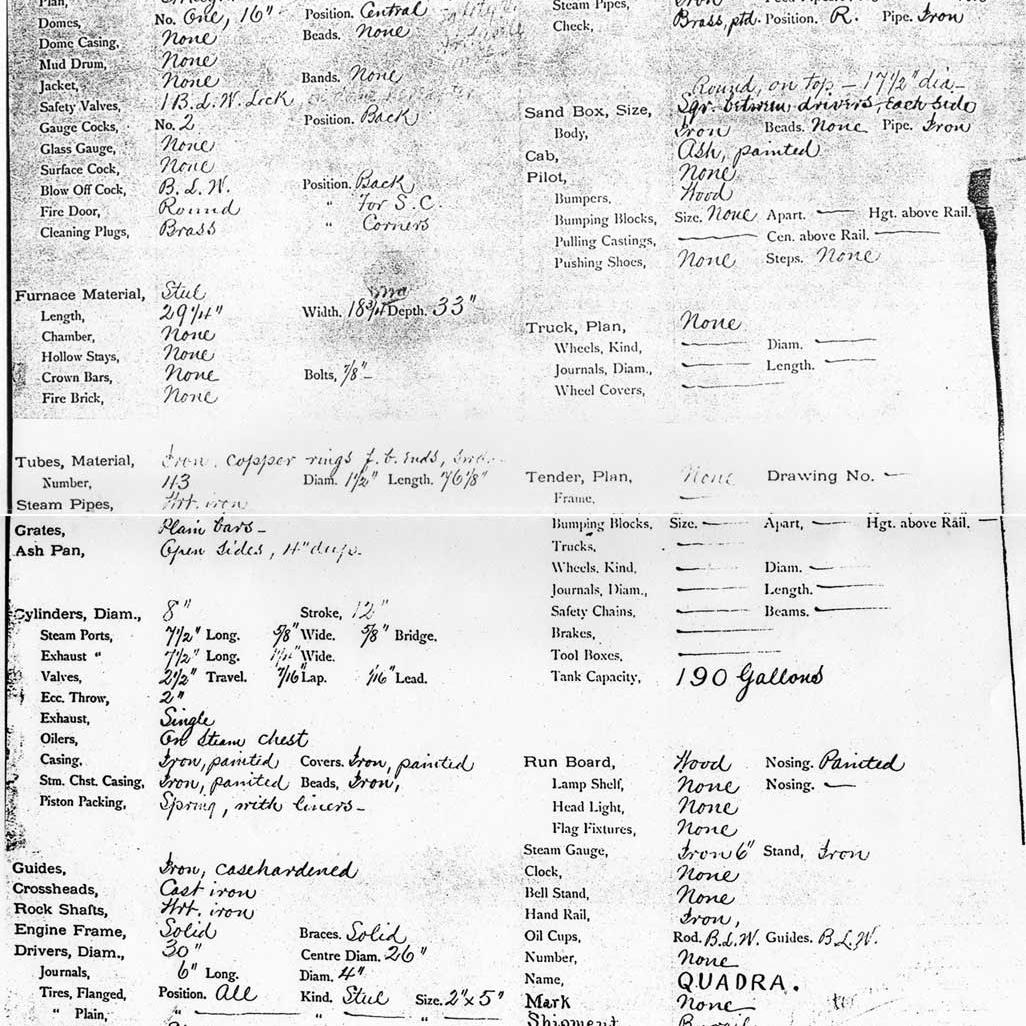 Domes, No. One, 16" Position. Central
Dome Casing, None Beads. None
Mud Drum, None
Jacket, None Bands. None
Safety Valves, 1 B.L.W. Lock
Gauge Cocks, No. 2 Position. Back
Glass Gauge, None
Surface Cock, None
Blow Off Cock, B.L.W. Position. Back
Fire Door, Round " For S.C.
Cleaning Plugs, Brass " Corners
Furnace Material, Steel
Length, 29 1/4" Width. 18 3/4 Depth. 33"
Chamber, None
Hollow Stays, None
Crown Bars, None Bolts, 7/8"
Fire Brick, None
Tubes, Material, Iron, copper rings f.b. ends,
Number, 43 Diam. 1 1/2" Length. 76 1/8"
Steam Pipes, Wrt. iron
Grates, Plain bars
Ash Pan, Open sides, 4" deep.
Cylinders, Diam., 8" Stroke, 12"
Steam Ports, 7 1/2" Long. 5/8" Wide. 5/8" Bridge.
Exhaust " 7 1/2" Long. 1 1/4" Wide.
Valves, 2 1/2" Travel. 7/16" Lap. 1/16" Lead.
Ecc. Throw, 2"
Exhaust, Single
Oilers, On steam chest
Casing, Iron, painted Covers. Iron, painted
Stm. Chst. Casing, Iron, painted Beads, Iron,
Piston Packing, Spring, with liners
Guides, Iron, casehardened
Crossheads, Cast iron
Rock Shafts, Wrt. iron
Engine Frame, Solid Braces. Solid
Drivers, Diam., 30" Centre Diam. 26"
Journals, 6" Long. Diam. 4"
Tires, Flanged, Position. All Kind. Steel Size. 2" x 5"
" Plain, " — " — " —
Steam Pipes,
Check, Brass, ptd. Position. R. Pipe. Iron
Round, on top — 17 1/2" dia
Sand Box, Size, Sqr. between drivers, each side
Body, Iron Beads. None Pipe. Iron
Cab, Ash, painted
Pilot, None
Bumpers, Wood
Bumping Blocks, Size. None Apart. — Hgt. above Rail.
Pulling Castings, — Cen. above Rail. —
Pushing Shoes, None Steps. None
Truck, Plan, None
Wheels, Kind, — Diam. —
Journals, Diam., — Length. —
Wheel Covers, —
Tender, Plan, None Drawing No. —
Frame, —
Bumping Blocks, Size. — Apart, — Hgt. above Rail. —
Trucks, —
Wheels, Kind, — Diam. —
Journals, Diam., — Length. —
Safety Chains, — Beams. —
Brakes, —
Tool Boxes, —
Tank Capacity, 190 Gallons
Run Board, Wood Nosing. Painted
Lamp Shelf, None Nosing. —
Head Light, None
Flag Fixtures, None
Steam Gauge, Iron 6" Stand, Iron
Clock, None
Bell Stand, None
Hand Rail, Iron,
Oil Cups, Rod. B.L.W. Guides. B.L.W.
Number, None
Name, QUADRA.
Mark None
Shipment